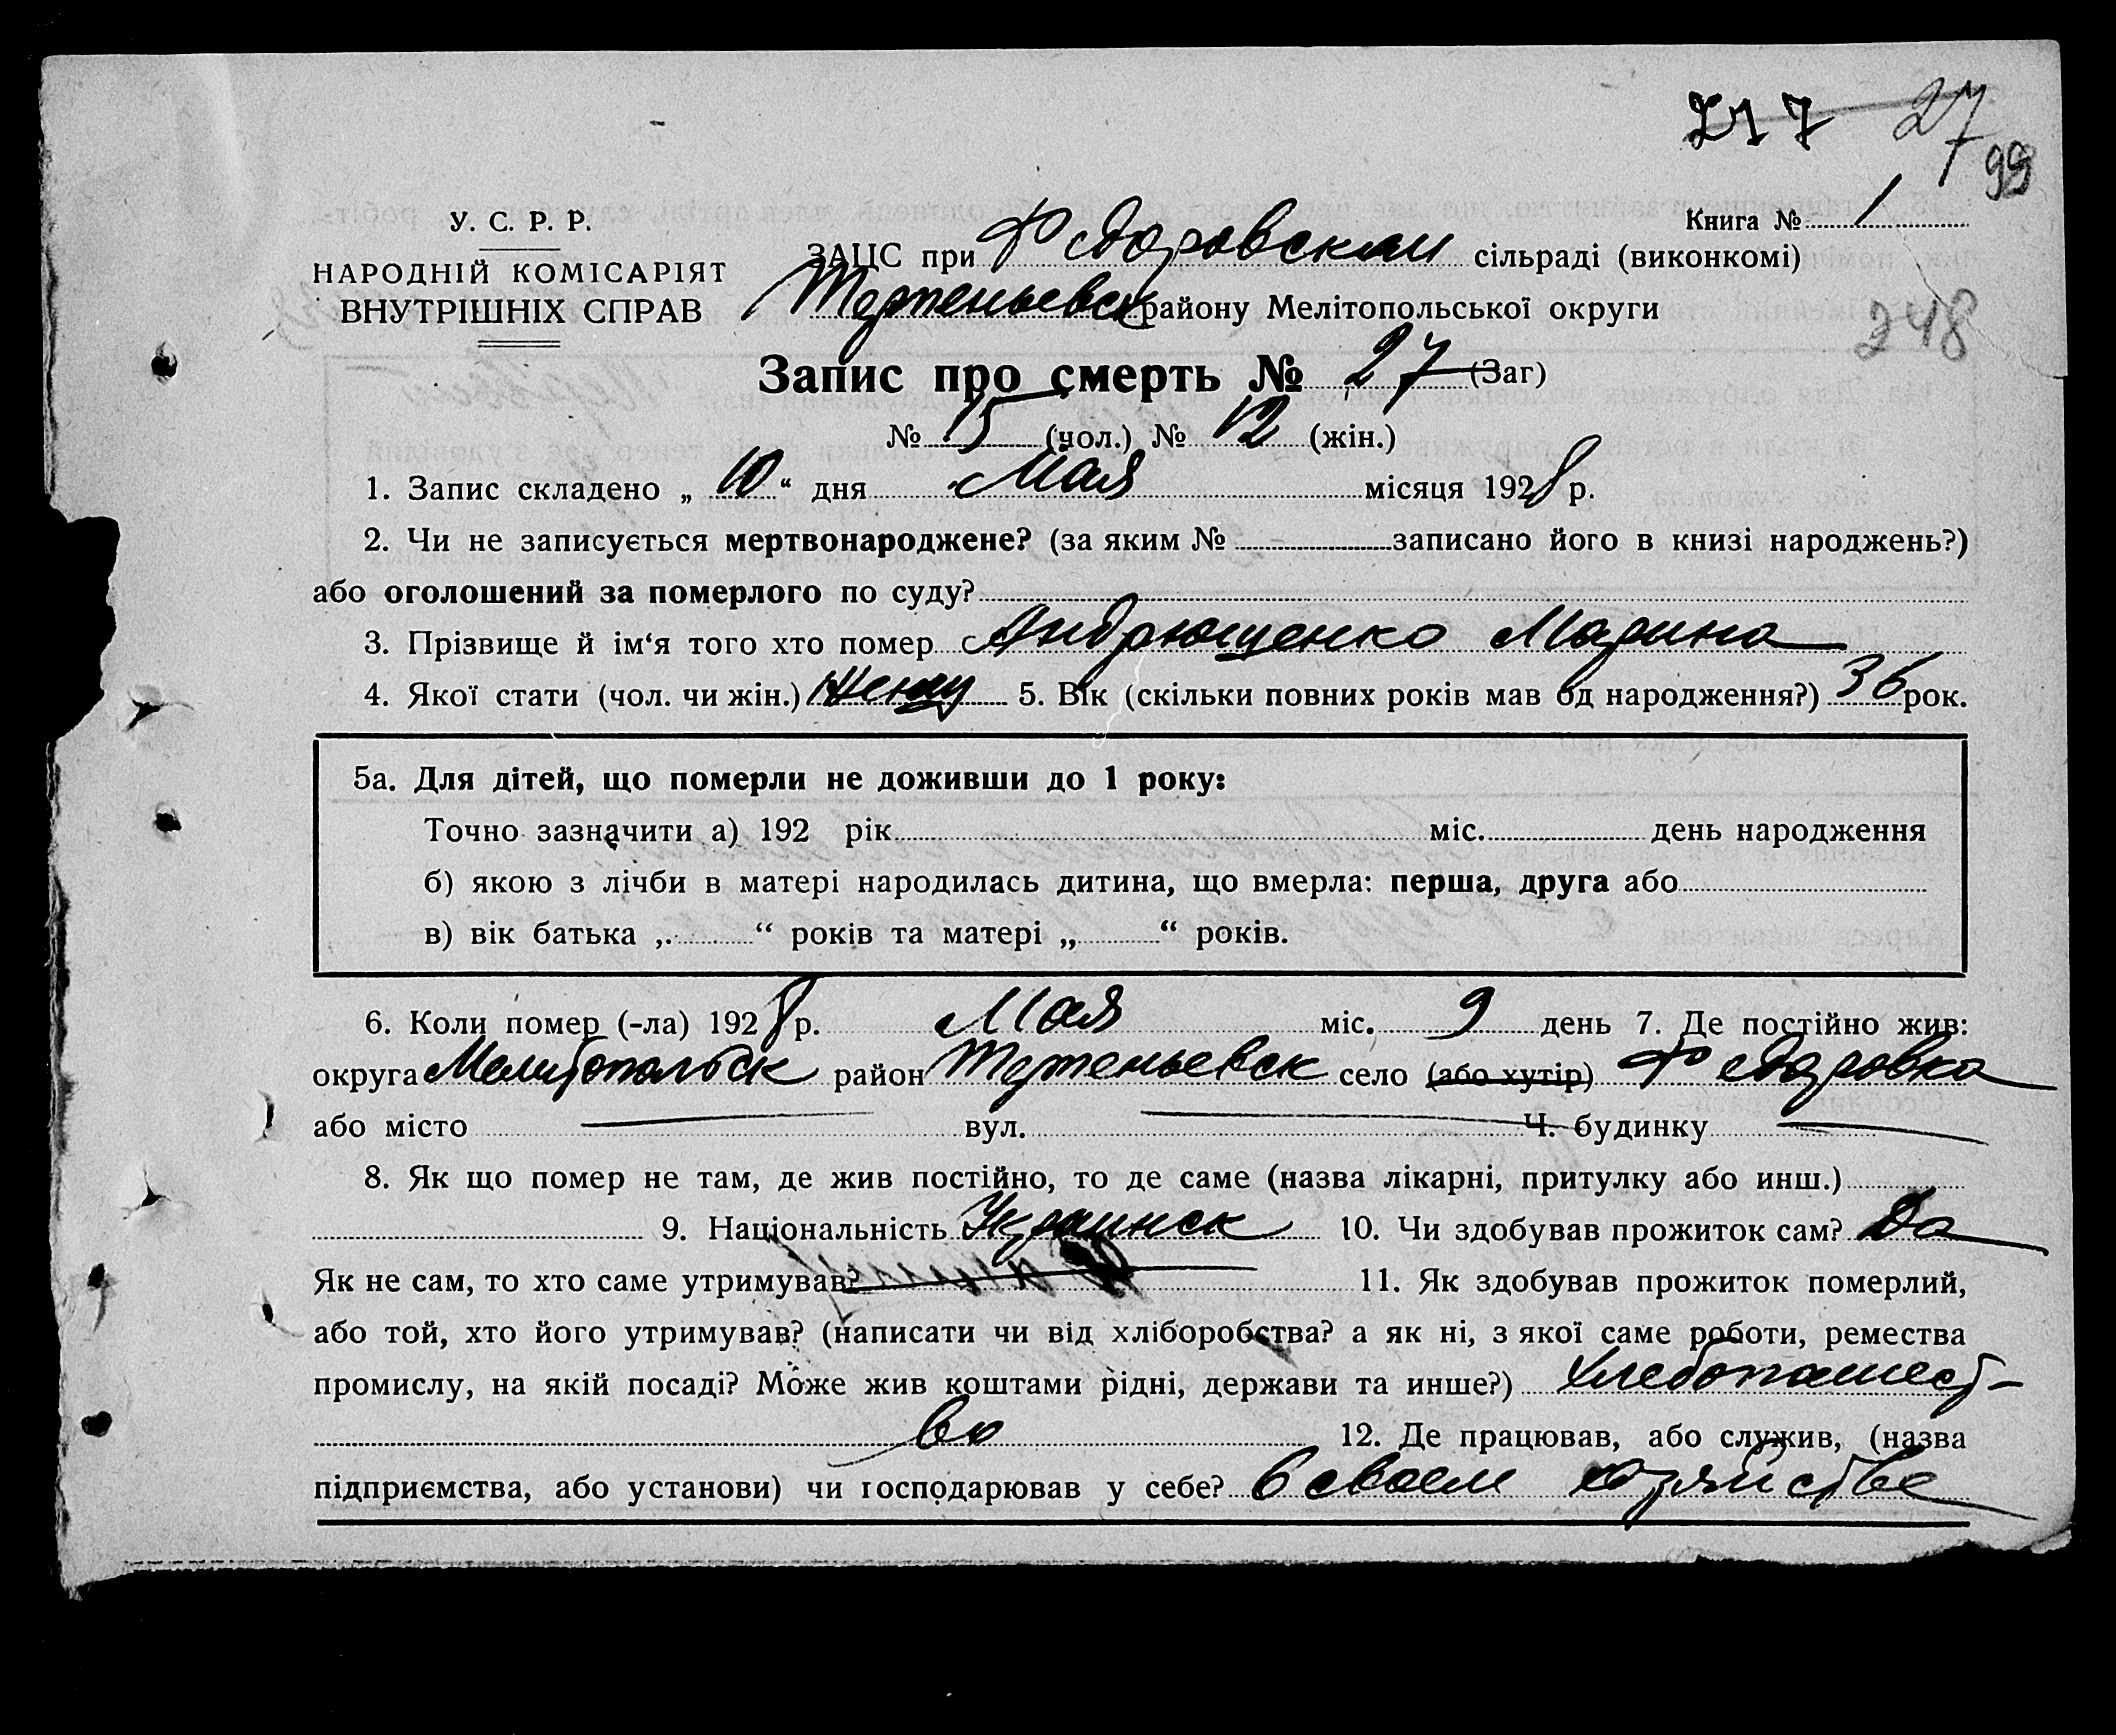 217 27
99
У. С. Р. Р.
НАРОДНІЙ КОМІСАРІЯТ
ВНУТРІШНІХ СПРАВ
Книга № 1
ЗАЦС при Федоровском сільраді (виконкомі)
району Мелітопольської округи
248
Запис про смерть № 27 (Заг)
№ 15 (чол.) № 12 (жін.)
1. Запис складено „ 10 “ дня Мая місяця 1928 р.
2. Чи не записується мертвонароджене? (за яким № записано його в книзі народжень?)
або оголошений за померлого по суду?
3. Прізвище й ім‘я того хто помер Андрющенко Марина
4. Якої стати (чол. чи жін.) 5. Вік (скільки повних років мав од народження?) 36 рок.
5а. Для дітей, що померли не доживши до 1 року:
Точно зазначити а) 192 рік міс. день народження
б) якою з лічби в матері народилась дитина, що вмерла: перша, друга або
в) вік батька „ “ років та матері „ “ років.
6. Коли помер (-ла) 1928 р. Мая міс. 9 день 7. Де постійно жив:
округа Мелитопольск район село (або хутір) Федоровка
або місто вул. Ч. будинку
8. Як що помер не там, де жив постійно, то де саме (назва лікарні, притулку або инш.)
9. Національність Украинск 10. Чи здобував прожиток сам? Да
Як не сам, то хто саме утримував? 11. Як здобував прожиток померлий,
або той, хто його утримував? (написати чи від хліборобства? а як ні, з якої саме роботи, ремества
промислу, на якій посаді? Може жив коштами рідні, держави та инше?) Хлебопашест-
во 12. Де працював, або служив, (назва
підприємства, або установи) чи господарював у себе? в своем хозяйстве